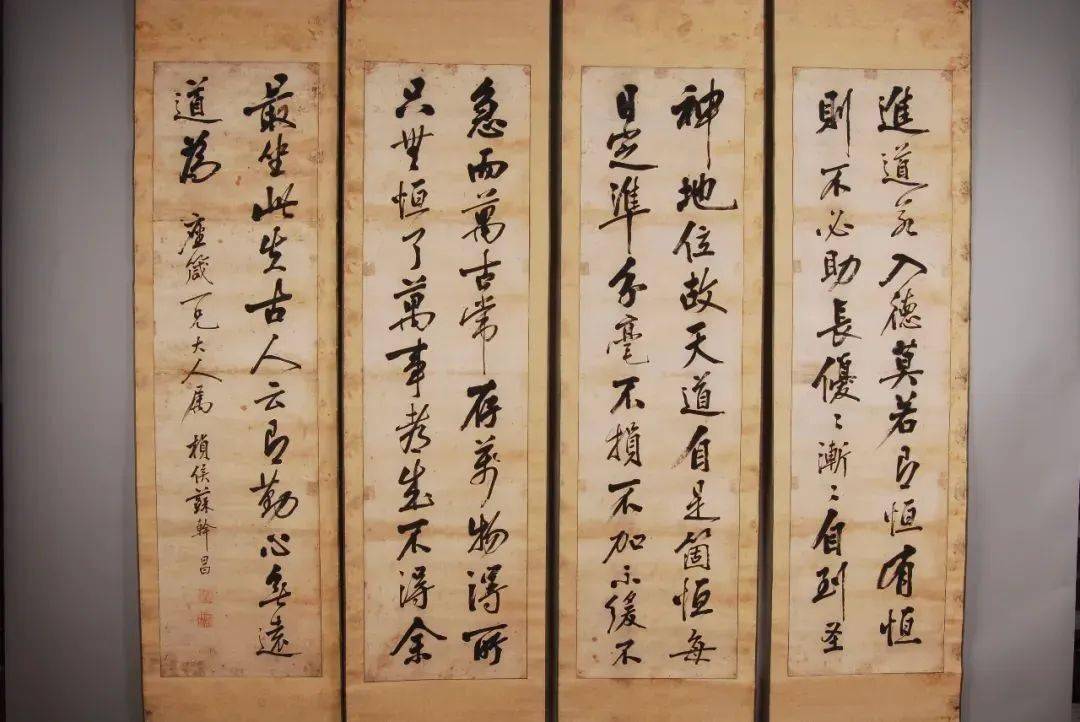 進道入德莫若即恒有恒
則不必助長優〻漸〻自到圣
神地位故天道自是箇恒每
日定準分毫不損不加不緩不
急而萬古常存萬物得所
只無恒了萬事都成不得余
最坐此失古人云即勤心無遠
道為
座箴兄大人属 楨侯蘇幹昌